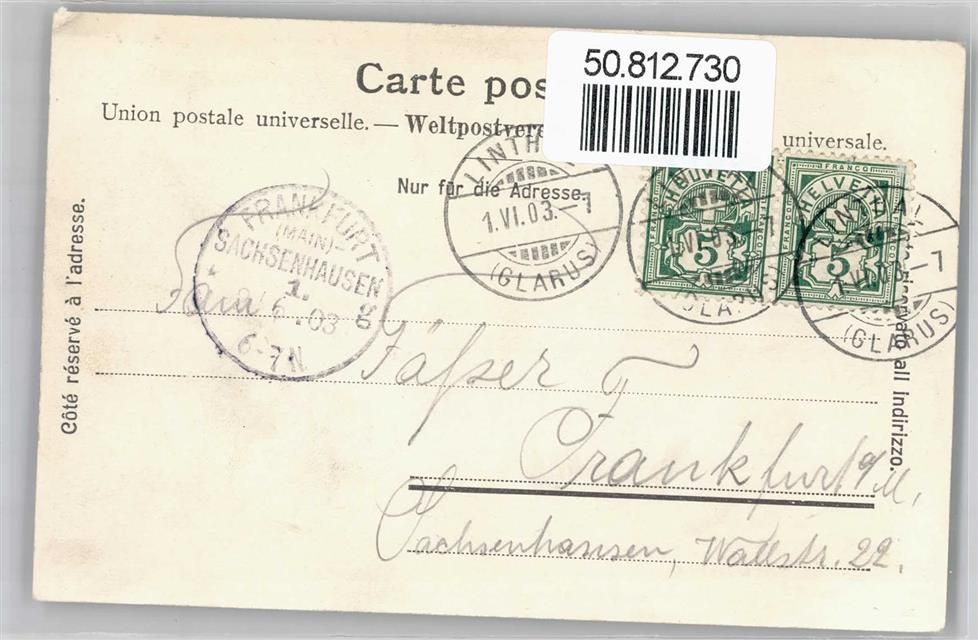 50.812.730
Carte pos
Union postale universelle. — Weltpostvera
universale.
Nur für die Adresse.
Côté réservé à l'adresse.
all Indirizzo.
LINTH
1.VI.03.–7
(GLARUS)
FRANKFURT
(MAIN)-
SACHSENHAUSEN
1.
6.03 g
6-7N
FRANCO
HELVETIA
5
5
1.VI.03
GLARUS
–7
(GLARUS)
Fam
Frankfurt a/M,
Sachsenhausen, Wallstr. 22.